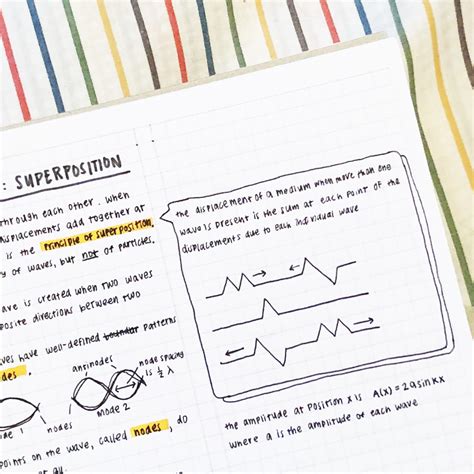 : SUPERPOSITION
through each other. When
displacements add together at
is the principle of superposition.
of waves, but not of particles.
wave is created when two waves
opposite directions between two
waves have well-defined boundar patterns
nodes.
antinodes
node spacing
is ½ λ
mode 1
mode 2
points on the wave, called nodes, do
the displacement of a medium when more than one
wave is present is the sum at each point of the
displacements due to each individual wave
the amplitude at position x is A(x) = 2a sin kx
where a is the amplitude of each wave